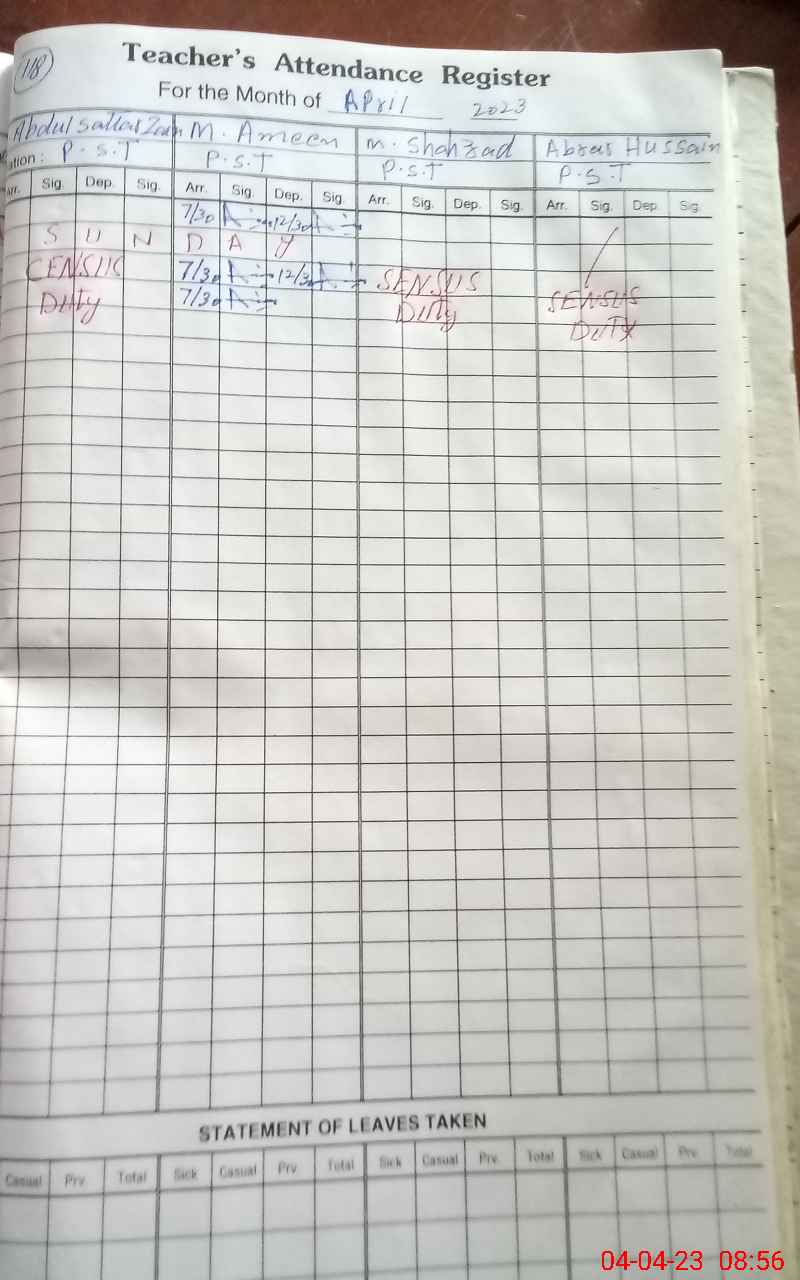 118
Teacher's Attendance Register
For the Month of APril 2023
Abdul Sattar Zaen M. Ameen M. Shahzad Abrar Hussain
ation: P.S.T P.S.T P.S.T P.S.T
Arr. Sig. Dep. Sig. Arr. Sig. Dep. Sig. Arr. Sig. Dep. Sig. Arr. Sig. Dep. Sig.
7/30 12/30
S U N D A Y
CENSUS 7/30 12/30 SENSUS
DUTY 7/30 DUTY SENSUS
DUTY
STATEMENT OF LEAVES TAKEN
Casual Prv. Total Sick Casual Prv Total Sick Casual Prv. Total Sick Casual Prv. Total
04-04-23 08:56